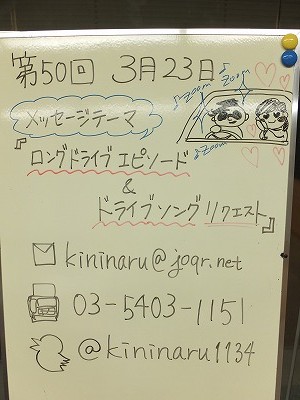 第50回 3月23日
♪zoom
zoom♪
♪zoom
メッセージテーマ
『ロングドライブエピソード
&
ドライブソングリクエスト』
kininaru@joqr.net
03-5403-1151
@kininaru1134